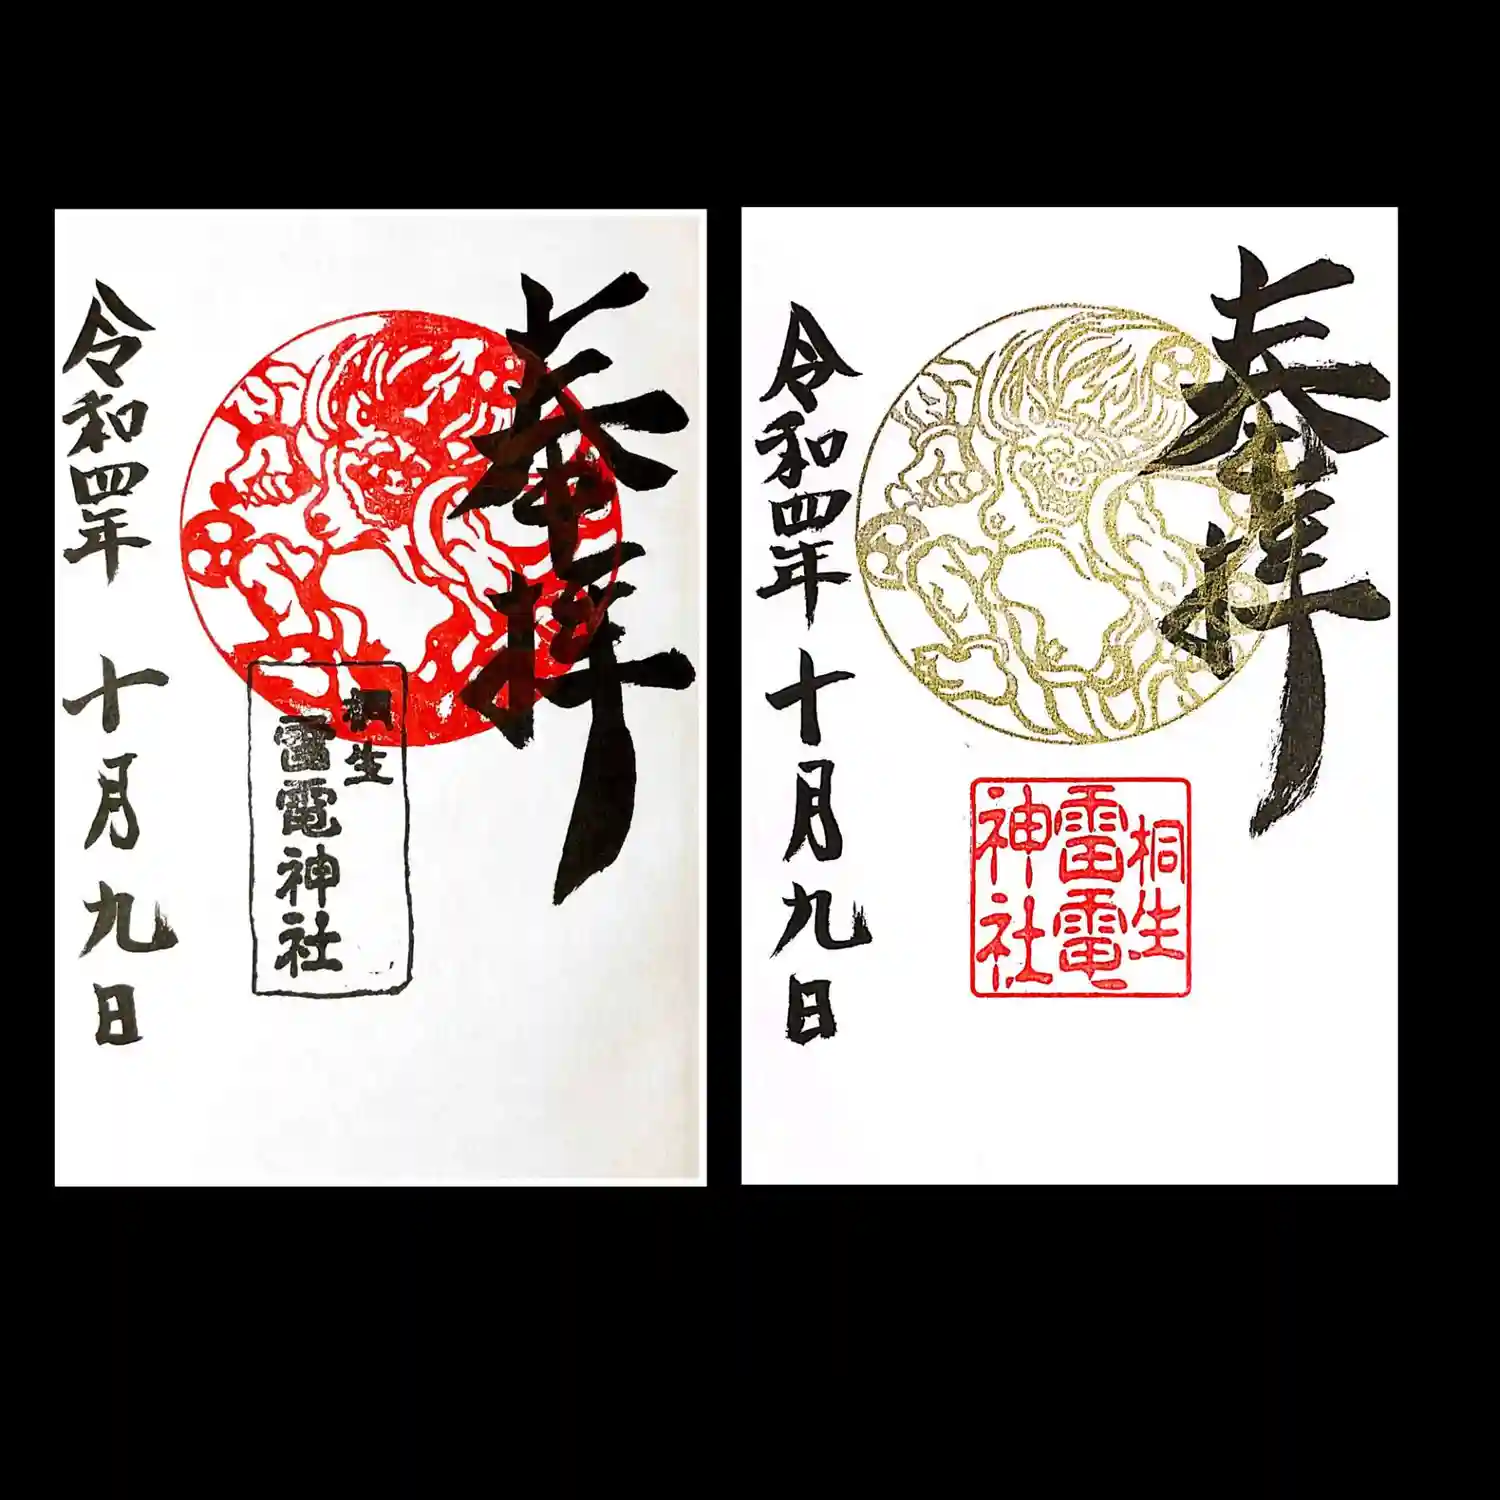 奉拝
桐生
雷電神社
令和四年 十月九日
奉拝
桐生
雷電
神社
令和四年 十月九日